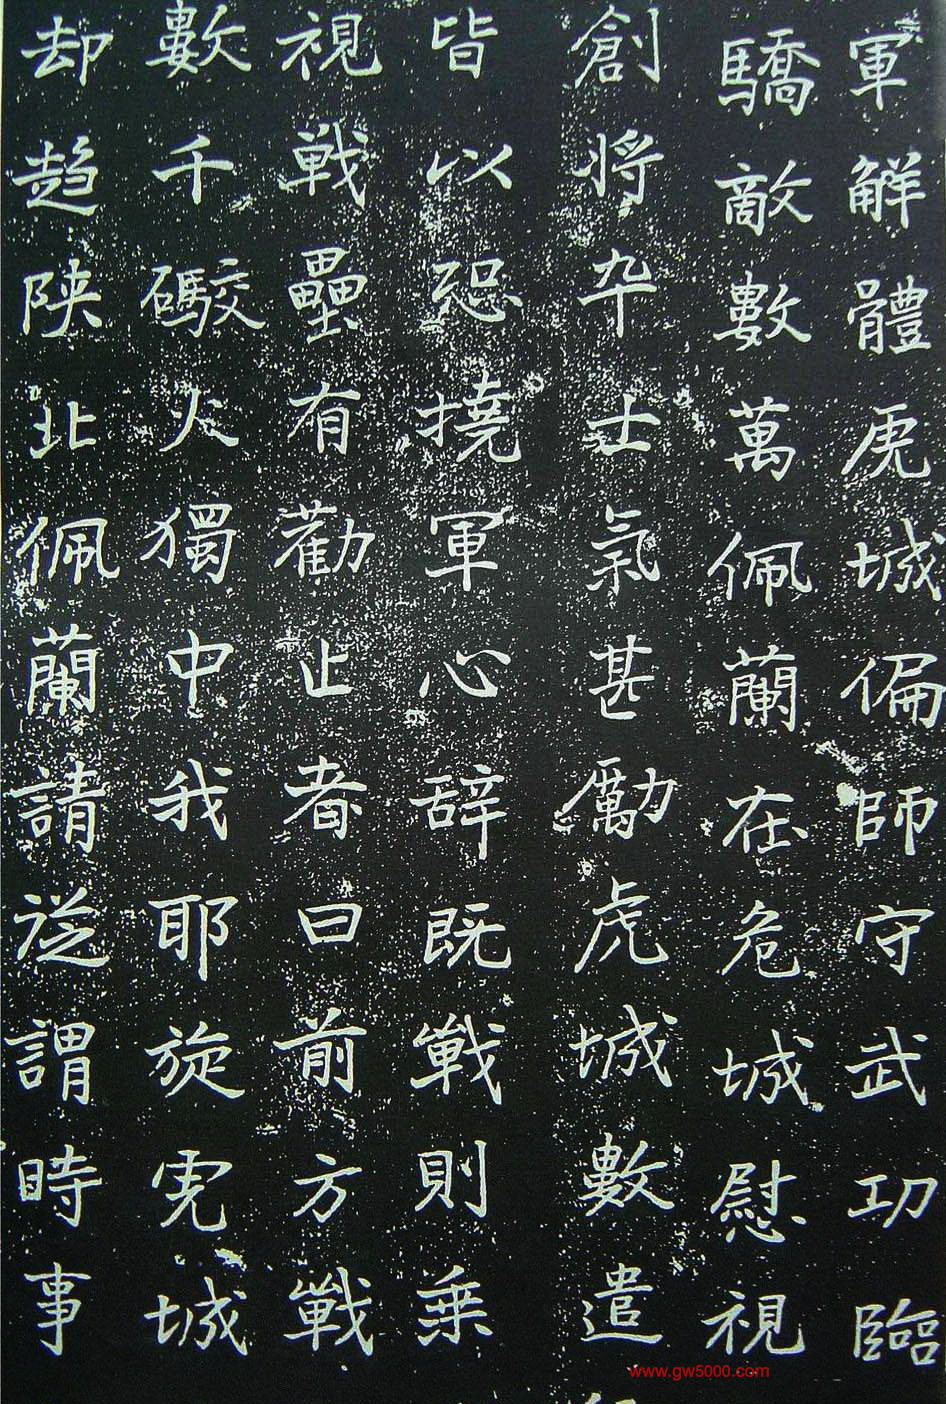 軍解體虎城偏師守武功臨
驕敵數萬佩蘭在危城慰視
創將卒士氣甚勵虎城數遣
皆以恐撓軍心辞既戰則乘
視戰壘有勸止者曰前方戰
數千礮火獨中我耶旋虎城
却趋陕北佩蘭請從謂時事
www.gw5000.com